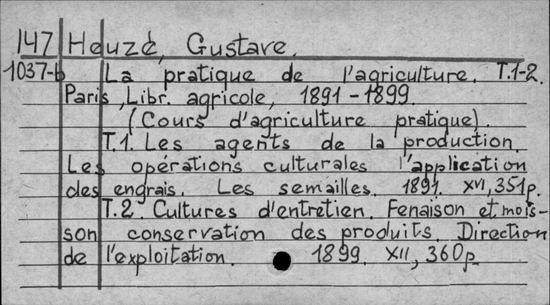 147 Heuzé, Gustave.
1037-b La pratique de l'agriculture. T.1-2.
Paris, Libr. agricole, 1891-1899.
(Cours d'agriculture pratique).
T.1. Les agents de la production.
Les opérations culturales l'application
des engrais. Les semailles. 1891. XVI, 351p.
T.2. Cultures d'entretien. Fenaison et mois-
son conservation des produits. Direction
de l'exploitation. 1899. XII, 360p.